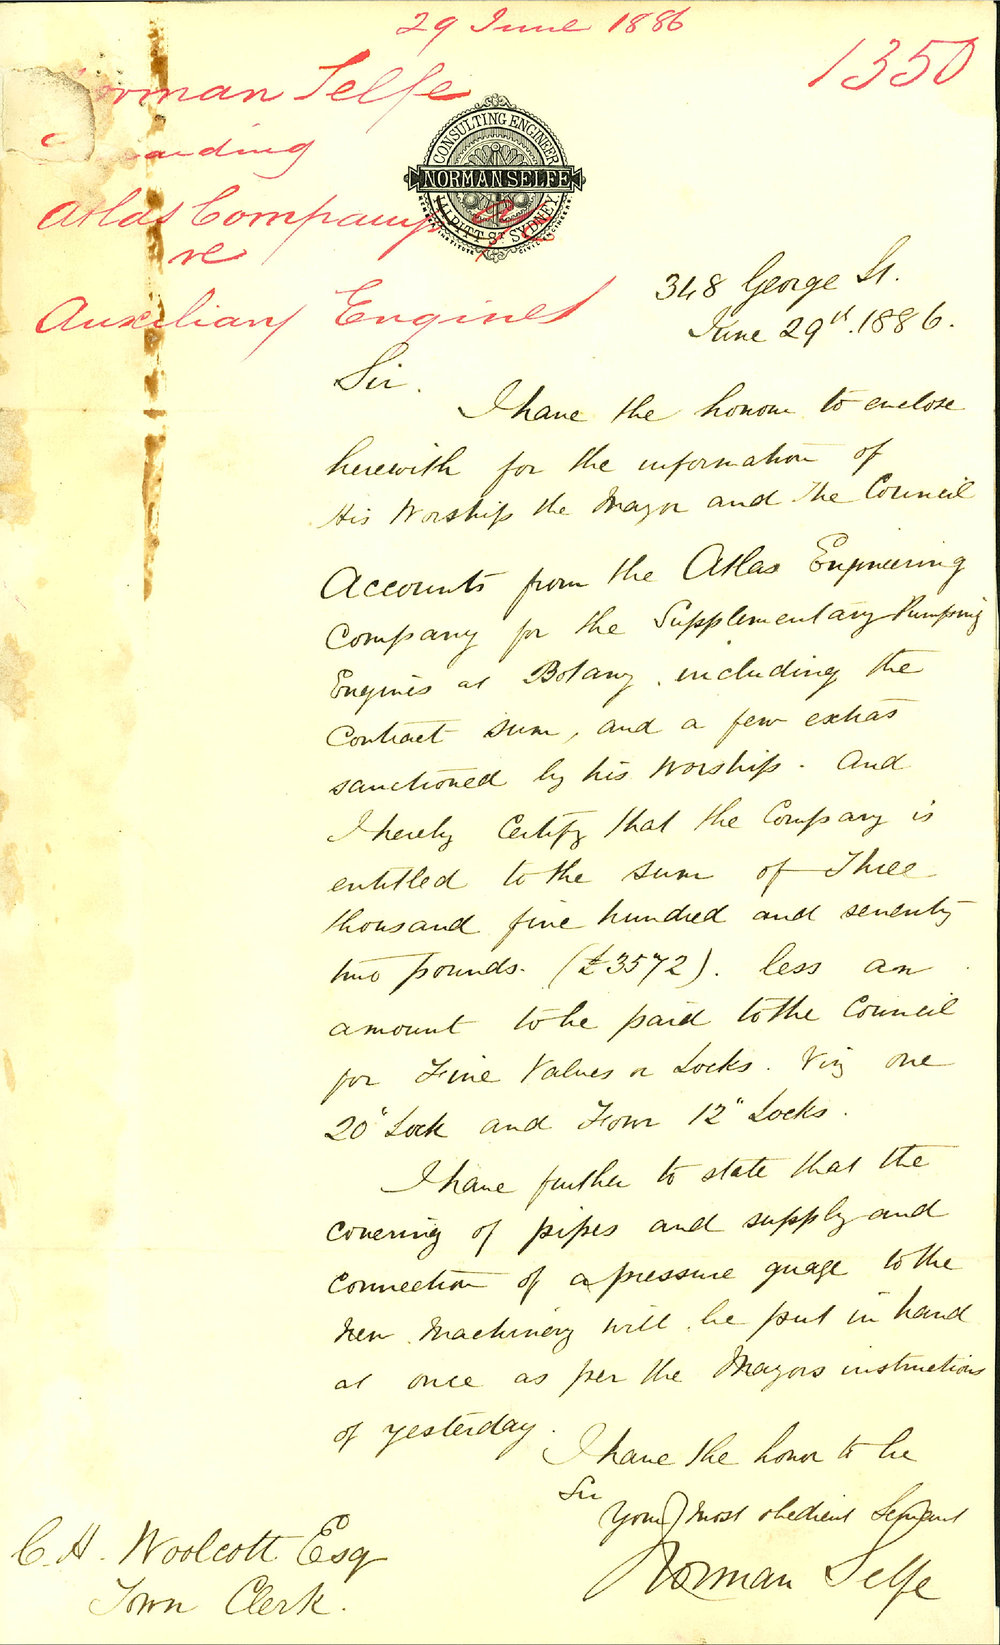 29 June 1886
1350
orman Selfe
arding
Atlas Company's
re
Auxiliary Engines
CONSULTING ENGINEER
NORMAN SELFE
141 PITT ST SYDNEY
348 George St.
June 29th. 1886.
Sir.
I have the honour to enclose
herewith for the information of
His Worship the Mayor and the Council
Accounts from the Atlas Engineering
Company for the Supplementary Pumping
Engines at Botany, including the
Contract sum, and a few extras
sanctioned by his Worship. And
I hereby Certify that the Company is
entitled to the sum of Three
thousand five hundred and seventy
two pounds. (£3572). less an
amount to be paid to the Council
for Five Valves or Locks. Viz one
20" Lock and Four 12" Locks.
I have further to state that the
covering of pipes and supply and
connection of a pressure guage to the
new Machinery will be put in hand
at once as per the Mayors instructions
of yesterday.
I have the honor to be
Sir
Your most obedient Servant
Norman Selfe
C. H. Woolcott Esq
Town Clerk.